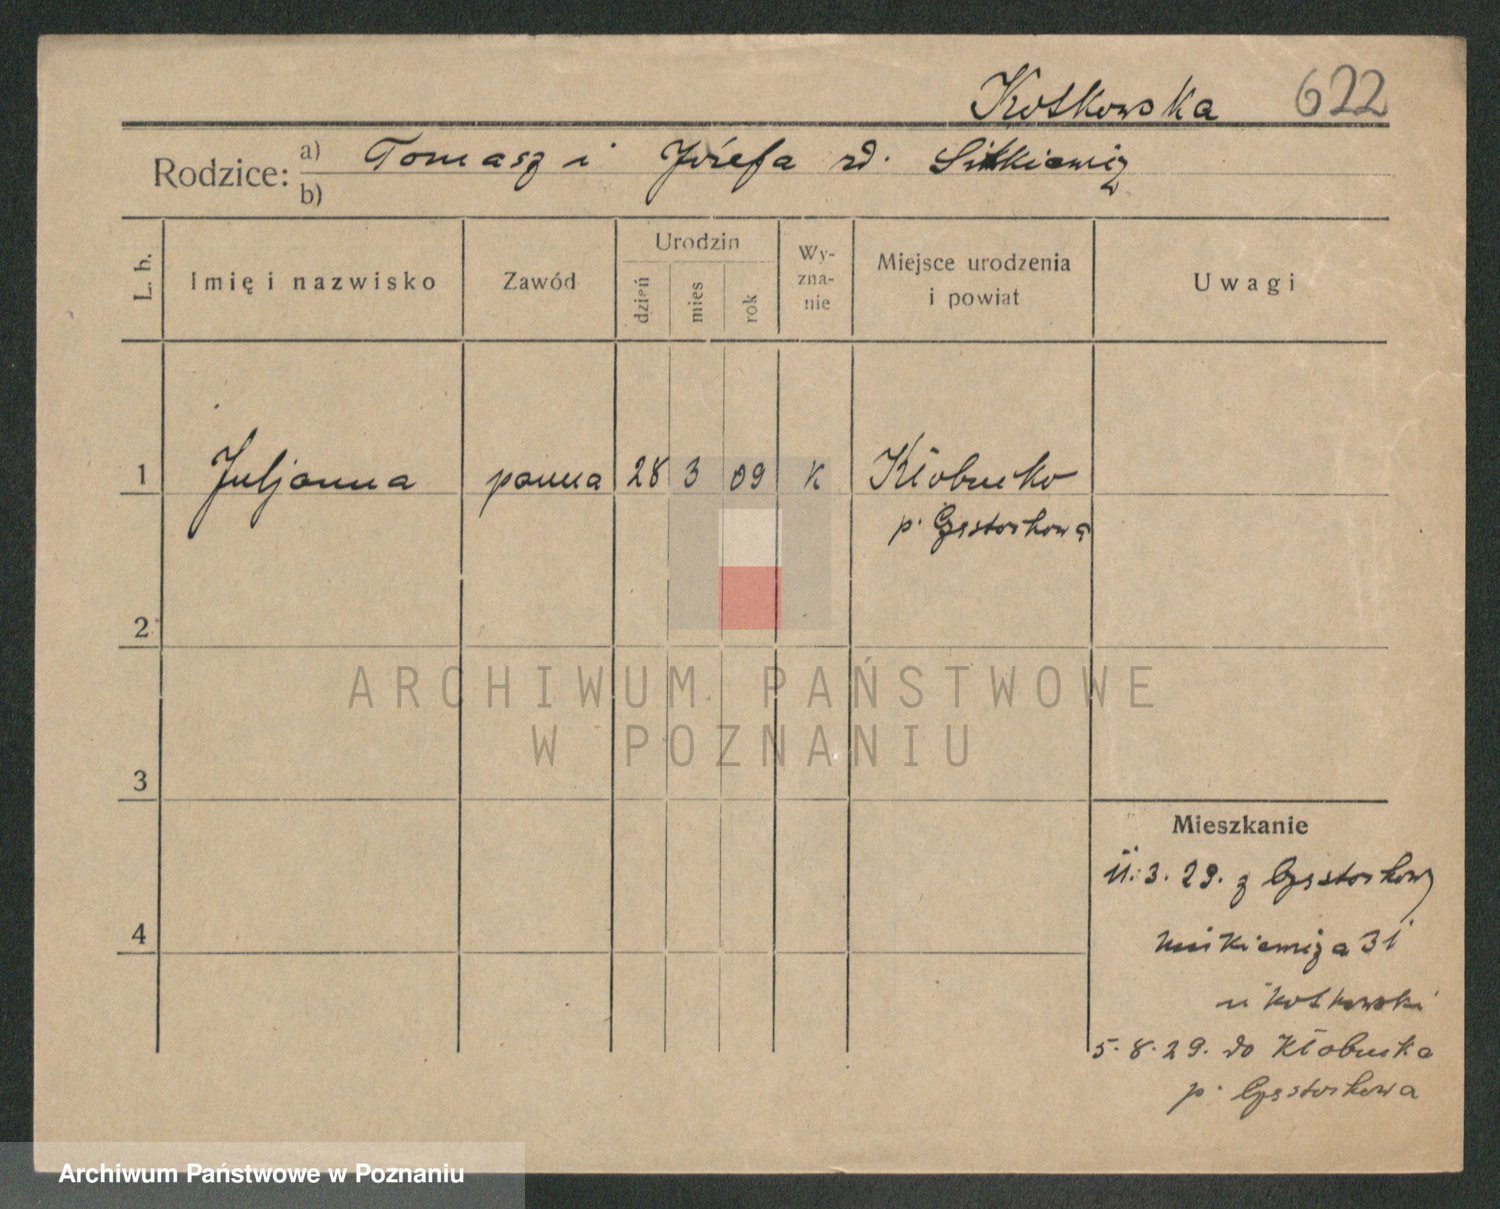 Kotkowska 622
Rodzice: a) Tomasz i Józefa rd. Sitkiewicz
b)
L. b. Imię i nazwisko Zawód Urodzin dzień mies rok Wy-zna-nie Miejsce urodzenia i powiat Uwagi
1 Juljanna panna 28 3 09 K Kłobucko
p. Częstochowa
2
ARCHIWUM PAŃSTWOWE
W POZNANIU
3
Mieszkanie
11.3.29. z Częstochowy
4
31
u Kotkowski
5.8.29. do Kłobucka
p. Częstochowa
Archiwum Państwowe w Poznaniu